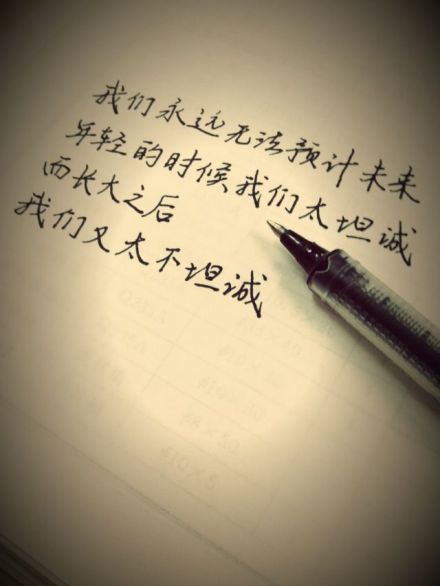 我们永远无法预计未来
年轻的时候我们太坦诚
而长大之后
我们又太不坦诚